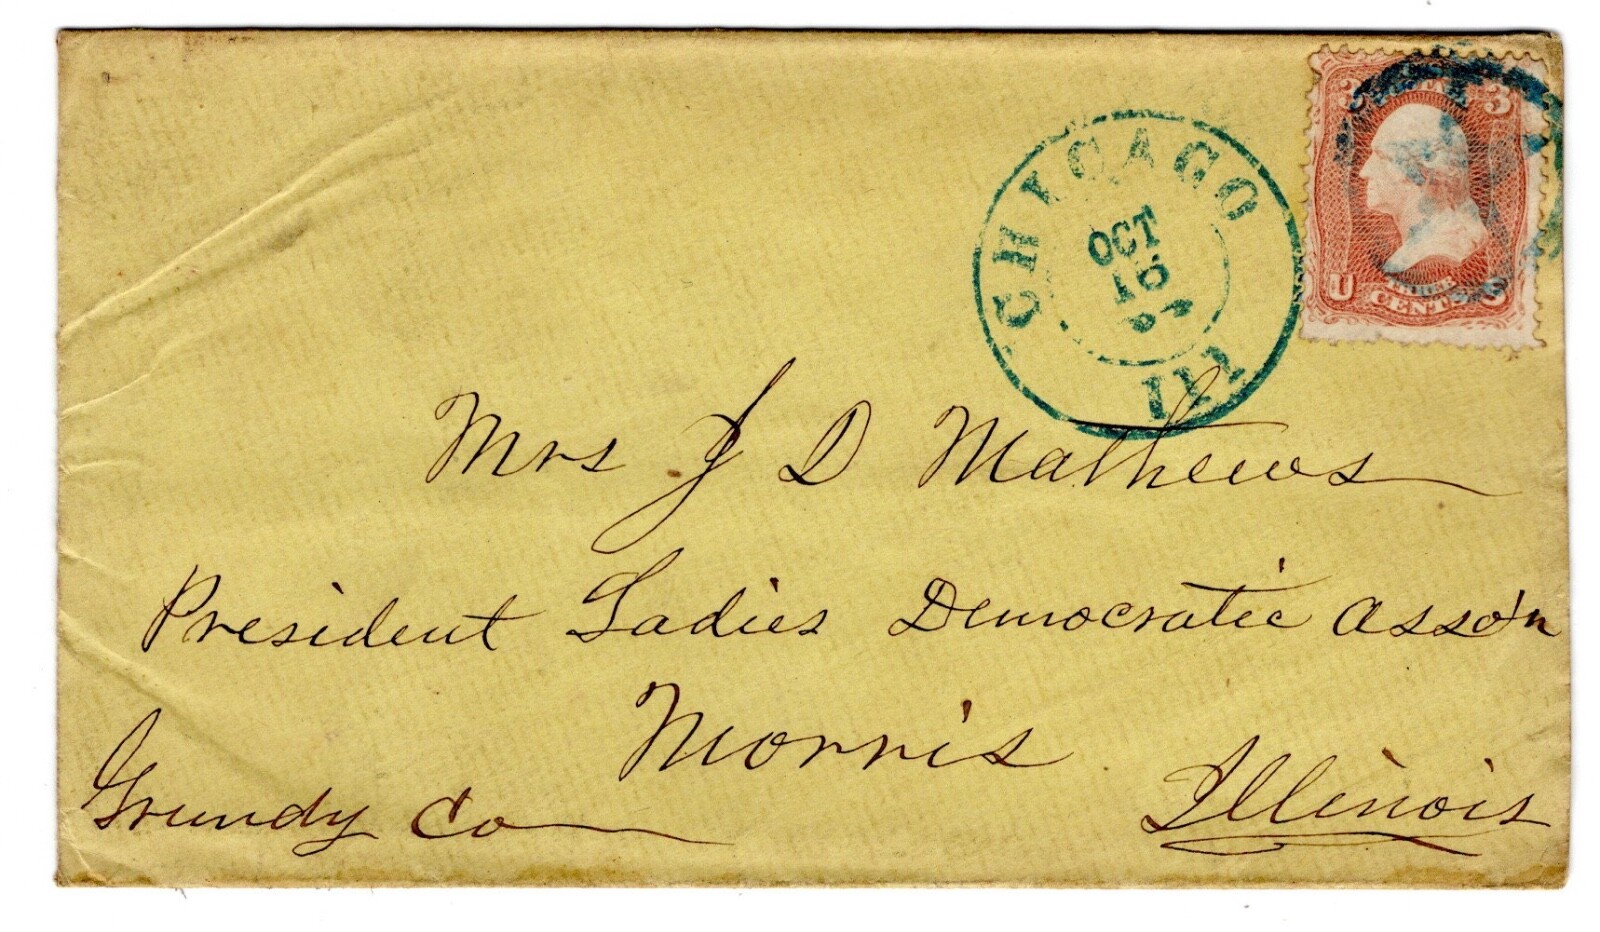 CHICAGO
OCT
16
Ill
3 3
U THREE S
CENTS
Mrs J D Mathews
President Ladies Democratic Asso'n
Morris
Grundy Co Illinois